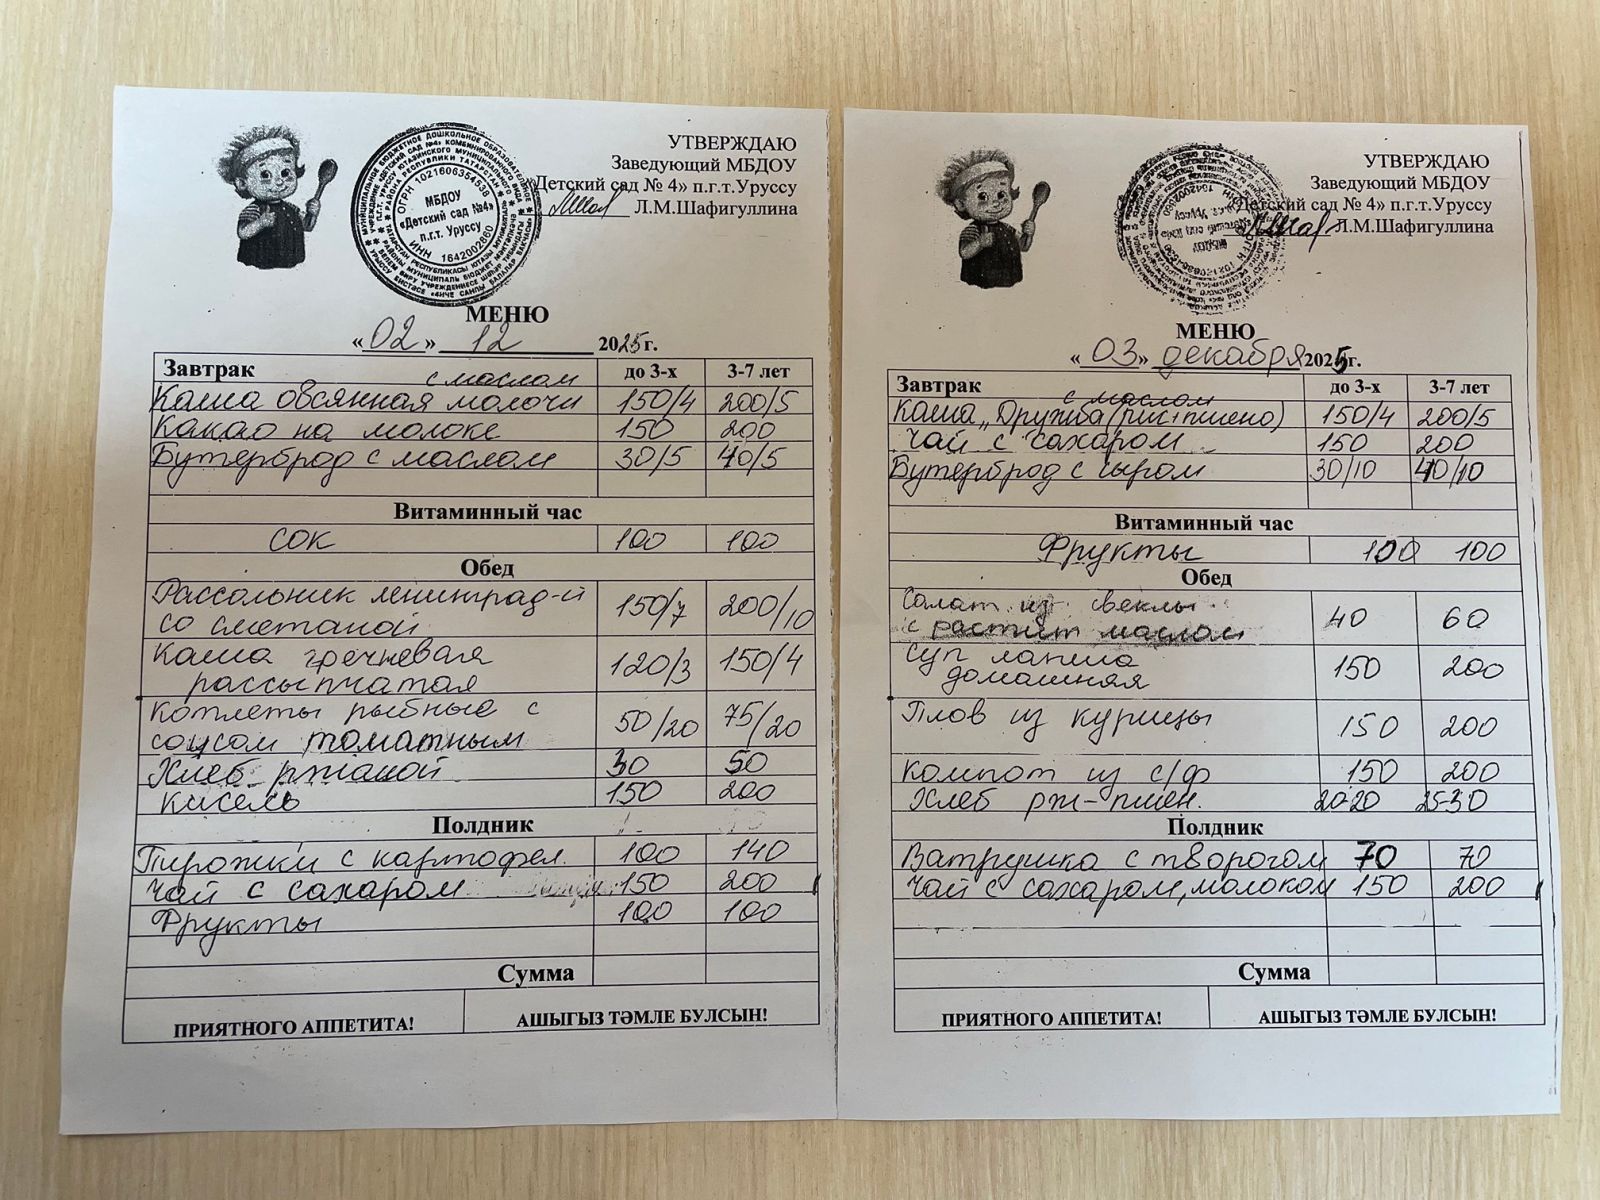 УТВЕРЖДАЮ
Заведующий МБДОУ
«Детский сад № 4» п.г.т.Уруссу
Л.М.Шафигуллина
МБДОУ
«Детский сад №4»
п.г.т. Уруссу
ОГРН 1021606354538
ИНН 1642002860
МЕНЮ
«02» 12 2025г.
Завтрак до 3-х 3-7 лет
с маслом
Каша овсянная молочн 150/4 200/5
Какао на молоке 150 200
Бутерброд с маслом 30/5 40/5
Витаминный час
сок 100 100
Обед
Рассольник ленинград-й 150/7 200/10
со сметаной
Каша гречневая 120/3 150/4
рассыпчатая
Котлеты рыбные с 50/20 75/20
соусом томатным
Хлеб ржаной 30 50
кисель 150 200
Полдник
Пирожки с картофел. 100 140
Чай с сахаром 150 200
Фрукты 100 100
Сумма
ПРИЯТНОГО АППЕТИТА! АШЫГЫЗ ТӘМЛЕ БУЛСЫН!
УТВЕРЖДАЮ
Заведующий МБДОУ
«Детский сад № 4» п.г.т.Уруссу
Л.М.Шафигуллина
МЕНЮ
«03» декабря 2025г.
Завтрак до 3-х 3-7 лет
с маслом
Каша „Дружба (рис+пшено) 150/4 200/5
Чай с сахаром 150 200
Бутерброд с сыром 30/10 40/10
Витаминный час
Фрукты 100 100
Обед
Салат из свеклы 40 60
с растит маслом
Суп лапша 150 200
домашняя
Плов из курицы 150 200
Компот из с/ф 150 200
Хлеб рж-пшен. 20-20 25-30
Полдник
Ватрушка с творогом 70 70
Чай с сахаром, молоком 150 200
Сумма
ПРИЯТНОГО АППЕТИТА! АШЫГЫЗ ТӘМЛЕ БУЛСЫН!